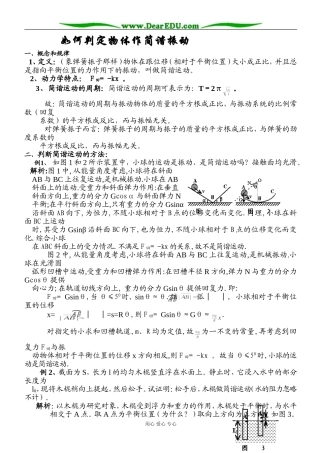 www.DearEDU.com
如何判定物体作简谐振动
一、概念和规律
1、定义:(象弹簧振子那样)物体在跟位移(相对于平衡位置)大小成正比、并且总
是指向平衡位置的力作用下的振动,叫做简谐振动。
2、动力学特点: F回=-kx 。
3、简谐运动的周期:简谐运动的周期可表示为:T=2π
故:简谐运动的周期与振动物体的质量的平方根成正比,与振动系统的比例常
数(回复
系数)的平方根成反比,而与振幅无关。
对弹簧振子而言:弹簧振子的周期与振子的质量的平方根成正比,与弹簧的劲
度系数的
平方根成反比,而与振幅无关。
二、判断简谐运动的方法:
例1、如图1和2所示装置中,小球的运动是振动,是简谐运动吗?接触面均光滑.
解析:图1中,从能量角度考虑,小球将在斜面
AB与BC上往复运动,是机械振动.小球在AB
斜面上的运动,受重力和斜面弹力作用;在垂直
斜面方向上,重力的分力Gcosα与斜面弹力N
平衡;在平行斜面方向上,只有重力的分力Gsinα
沿斜面AB向下,为恒力,不随小球相对于B点的位移变化而变化.同理,小球在斜
面BC上运动
时,其受力Gsinβ沿斜面BC向下,也为恒力,不随小球相对于B点的位移变化而变
化.综合小球
在ABC斜面上的受力情况,不满足F回=-kx的关系,故不是简谐运动.
图2中,从能量角度考虑,小球将在斜面AB与BC上往复运动,是机械振动,小
球在光滑圆
弧形凹槽中运动,受重力和凹槽弹力作用;在凹槽半径R方向,弹力N与重力的分力
Gcosθ提供
向心力;在轨道切线方向上,重力的分力Gsinθ提供回复力.即:
F回=Gsinθ,当θ≤5º时,sinθ≈θ,
的位移
=s=Rθ,则F回=Gsinθ=Gθ≈
对指定的小球和凹槽轨道,m、R均为定值,故
复力F回与振
动物体相对于平衡位置的位移x方向相反,则F回=-kx .故当θ≤5º时,小球的运
动是简谐运动.
例2、截面为S、长为l的均匀木棍竖直浮在水面上,静止时,它浸入水中的部分
长度为
l0,现将木棍稍向上提起,然后松手,试证明:松手后,木棍做简谐运动(水的阻力忽略
不计).
解析:以木棍为研究对象,木棍受到浮力和重力的作用,木棍处于平衡时,与水平
相交于A点,取A点为平衡位置(为什么?)取向上方向为正方向,如图3.
图 3
用心 爱心 专心